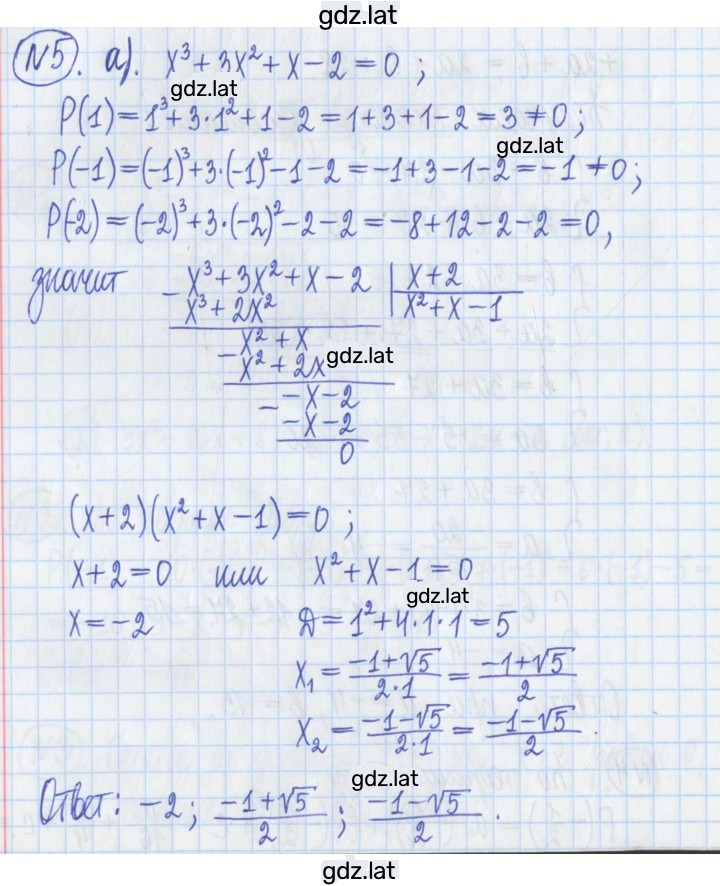 gdz.lat
№5. а). x³ + 3x² + x − 2 = 0 ;
gdz.lat
P(1) = 1³ + 3·1² + 1 − 2 = 1 + 3 + 1 − 2 = 3 ≠ 0 ;
gdz.lat
P(−1) = (−1)³ + 3·(−1)² − 1 − 2 = −1 + 3 − 1 − 2 = −1 ≠ 0 ;
P(−2) = (−2)³ + 3·(−2)² − 2 − 2 = −8 + 12 − 2 − 2 = 0,
значит − x³ + 3x² + x − 2 | x + 2
x³ + 2x² | x² + x − 1
x² + x
− x² + 2x gdz.lat
− −x − 2
−x − 2
0
(x + 2)(x² + x − 1) = 0 ;
x + 2 = 0 или x² + x − 1 = 0
gdz.lat
x = −2 D = 1² + 4·1·1 = 5
x₁ = (−1+√5)/(2·1) = (−1+√5)/2
x₂ = (−1−√5)/(2·1) = (−1−√5)/2 .
gdz.lat
Ответ: −2 ; (−1+√5)/2 ; (−1−√5)/2 .
gdz.lat